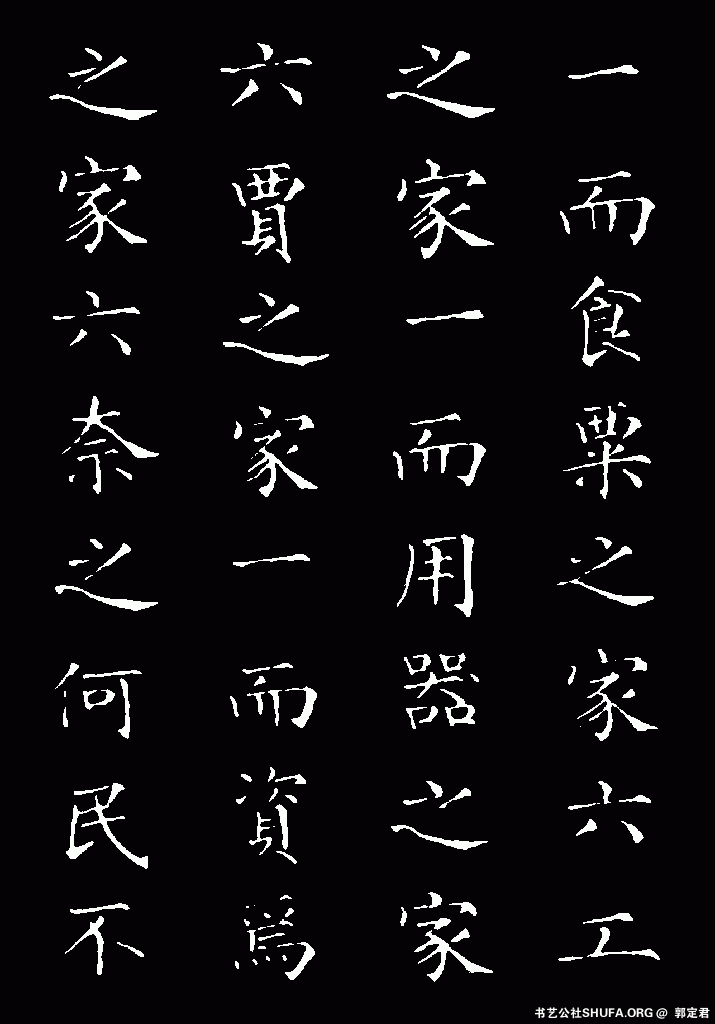 一而食粟之家六工
之家一而用器之家
六賈之家一而資焉
之家六奈之何民不
书艺公社SHUFA.ORG @ 郭定君